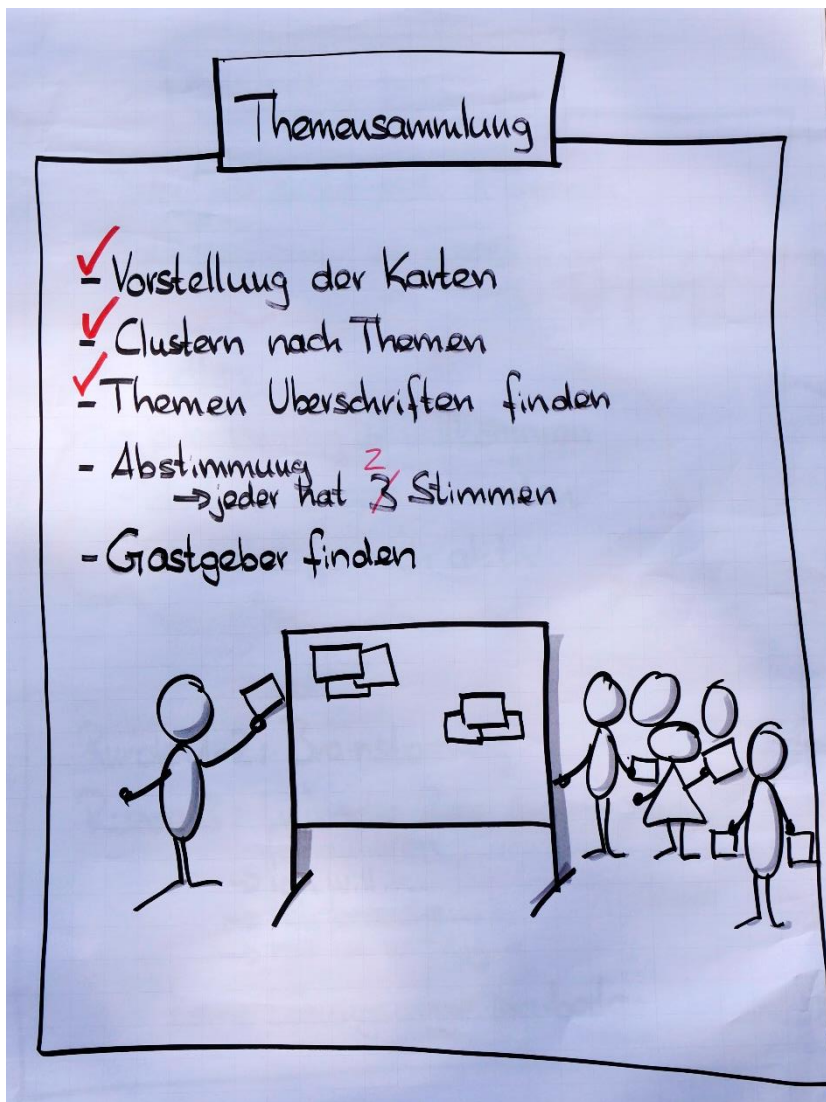 Themensammlung
- Vorstellung der Karten
- Clustern nach Themen
- Themen Überschriften finden
- Abstimmung
→ jeder hat 3 2 Stimmen
- Gastgeber finden